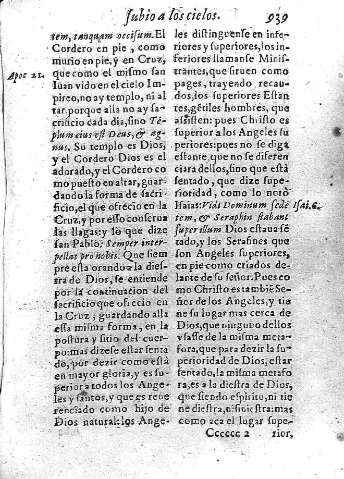 Subio a los cielos. 939
tem, tanquam occisum. El
Cordero en pie, como
murio en pie, y en Cruz,
que como el mismo san
Apoc 21. Iuan vido en el cielo Im-
pireo, no ay templo, ni al
tar, porque alla no ay sa-
crificio cada dia, sino Tē-
plum eius est Deus, & ag-
nus. Su templo es Dios,
y el Cordero Dios es el
adorado, y el Cordero co
mo puesto en altar, guar-
dando la forma de sacri-
ficio, el que ofrecio en la
Cruz, y por esso conserua
las llagas: y lo que dize
san Pablo: Semper inter-
pellas pro nobis. Que siem
pre esta orando a la dies-
tra de Dios, se entiende
por la continuacion del
sacrificio que ofrecio en
la Cruz, guardando alla
essa misma forma, en la
postura y sitio del cuer-
po: mas dizese estar senta
do, por dezir como està
en mayor gloria, y es su-
perior a todos los Ange
les y santos, y que es reue
renciado como hijo de
Dios natural: los Ange-
les distinguense en infe-
riores y superiores, los in-
feriores llamanse Minis-
trantes, que siruen como
pages, trayendo recau-
dos, los superiores Estan
tes, gētiles hombres, que
assisten: pues Christo es
superior a los Angeles su
periores: pues no se diga
estante, que no se diferen
ciara dellos, sino que està
sentado, que dize supe-
rioridad, como lo notò
Isaias: Vidi Dominum sede Isai. 6.
tem, & Seraphin stabant
super illum Dios estaua sē
tado, y los Serafines que
son Angeles superiores,
en pie como criados de-
lante de su señor. Pues co
mo Christo es tambiē Se-
ñor de los Angeles, y tie
ne su lugar mas cerca de
Dios, que ninguno dellos
vsasse de la misma meta-
fora, que para dezir la su
perioridad de Dios, estar
sentado, la misma metafo
ra, es a la diestra de Dios,
que siendo espiritu, ni tie
ne diestra, ni siniestra: mas
como aca el lugar supe-
Cccccc 2 rior,